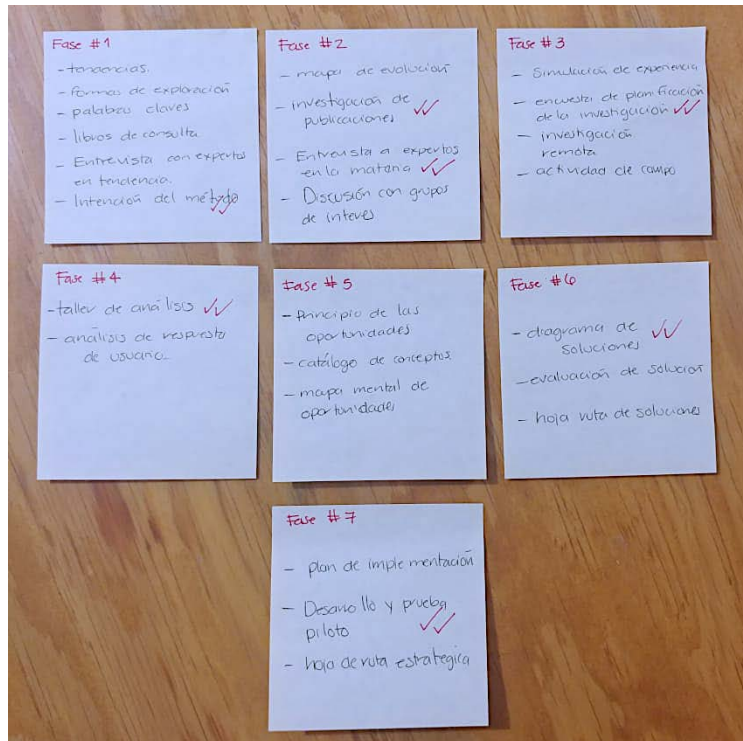 Fase #1
- tendencias.
- formas de exploración
- palabras claves
- libros de consulta
- Entrevista con expertos
en tendencia.
- Intención del método
Fase #2
- mapa de evolución
- investigación de
publicaciones
- Entrevista a expertos
en la materia
- Discusión con grupos
de interes
Fase #3
- Simulación de experiencia
- encuesta de planificación
de la investigación
- investigación
remota
- actividad de campo
Fase #4
- taller de análisis
- análisis de respuesta
de usuario.
Fase #5
- Principio de las
oportunidades
- catálogo de conceptos
- mapa mental de
oportunidades
Fase #6
- diagrama de
soluciones
- evaluación de solución
- hoja ruta de soluciones
Fase #7
- plan de implementación
- Desarrollo y prueba
piloto
- hoja de ruta estrategica